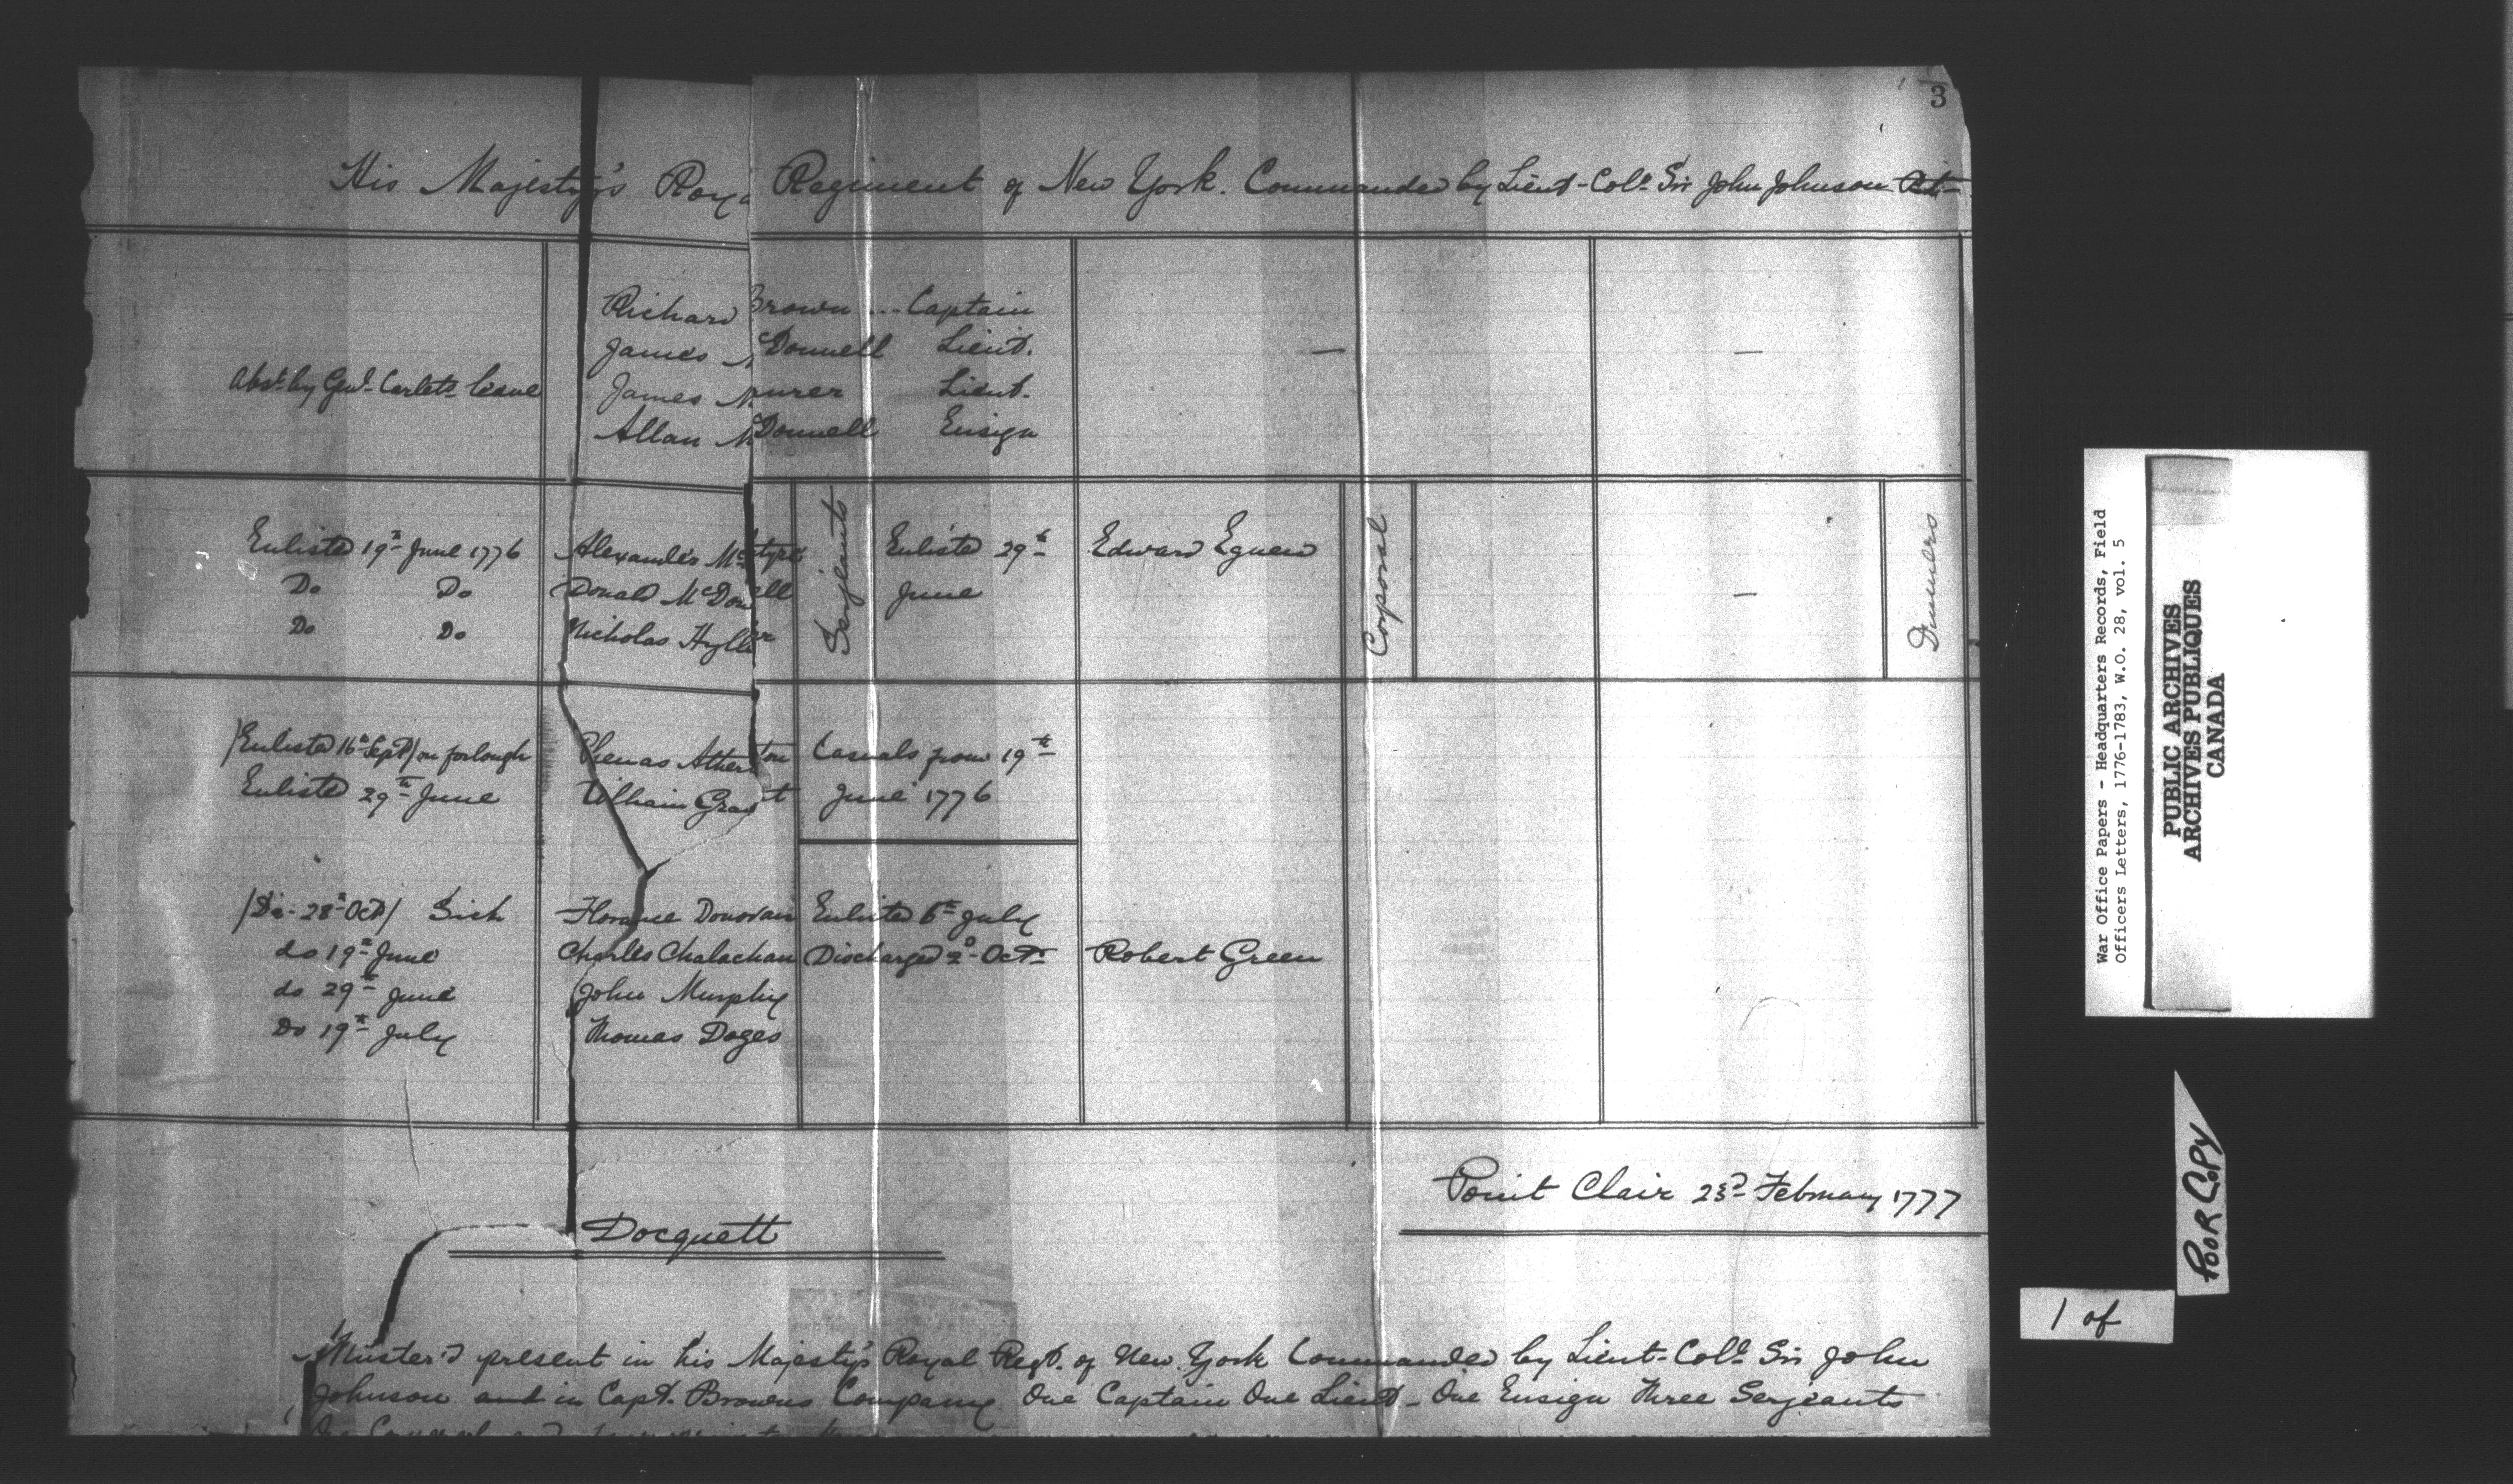 3
His Majesty's Roya Regiment of New York. Commanded by Lieut-Colo. Sir John Johnson Bt-
Richard Brown ... Captain
James McDonnell Lieut.
Abst. by Genl. Carlets leave James Lieut.
Allan McDonnell Ensign
Enlisted 19th June 1776 Alexander McIntyre Serjeants Enlisted 29th Edward Egnew Corporal Drummers
Do Do Donald McDonell June
Do Do Nicholas Hyller
/Enlisted 16th Sept/ on forlough Atherton Casuals from 19th
Enlisted 29th June William Grant June 1776
/Do- 28th Oct/ Sick Florance Donovan Enlisted 6th July
do 19th June Charles Chalachan Discharged 2d Octr. Robert Green
do 29th June John Murphy
Do 19th July Thomas Doges
Point Clair 23d February 1777
Docquett
Muster'd present in his Majesty's Royal Regt. of New York Commanded by Lieut-Colo. Sir John
Johnson and in Capt. Browns Company One Captain One Lieut- One Ensign Three Serjeants
War Office Papers - Headquarters Records, Field
Officers Letters, 1776-1783, W.O. 28, vol. 5
PUBLIC ARCHIVES
ARCHIVES PUBLIQUES
CANADA
POOR COPY
1 of